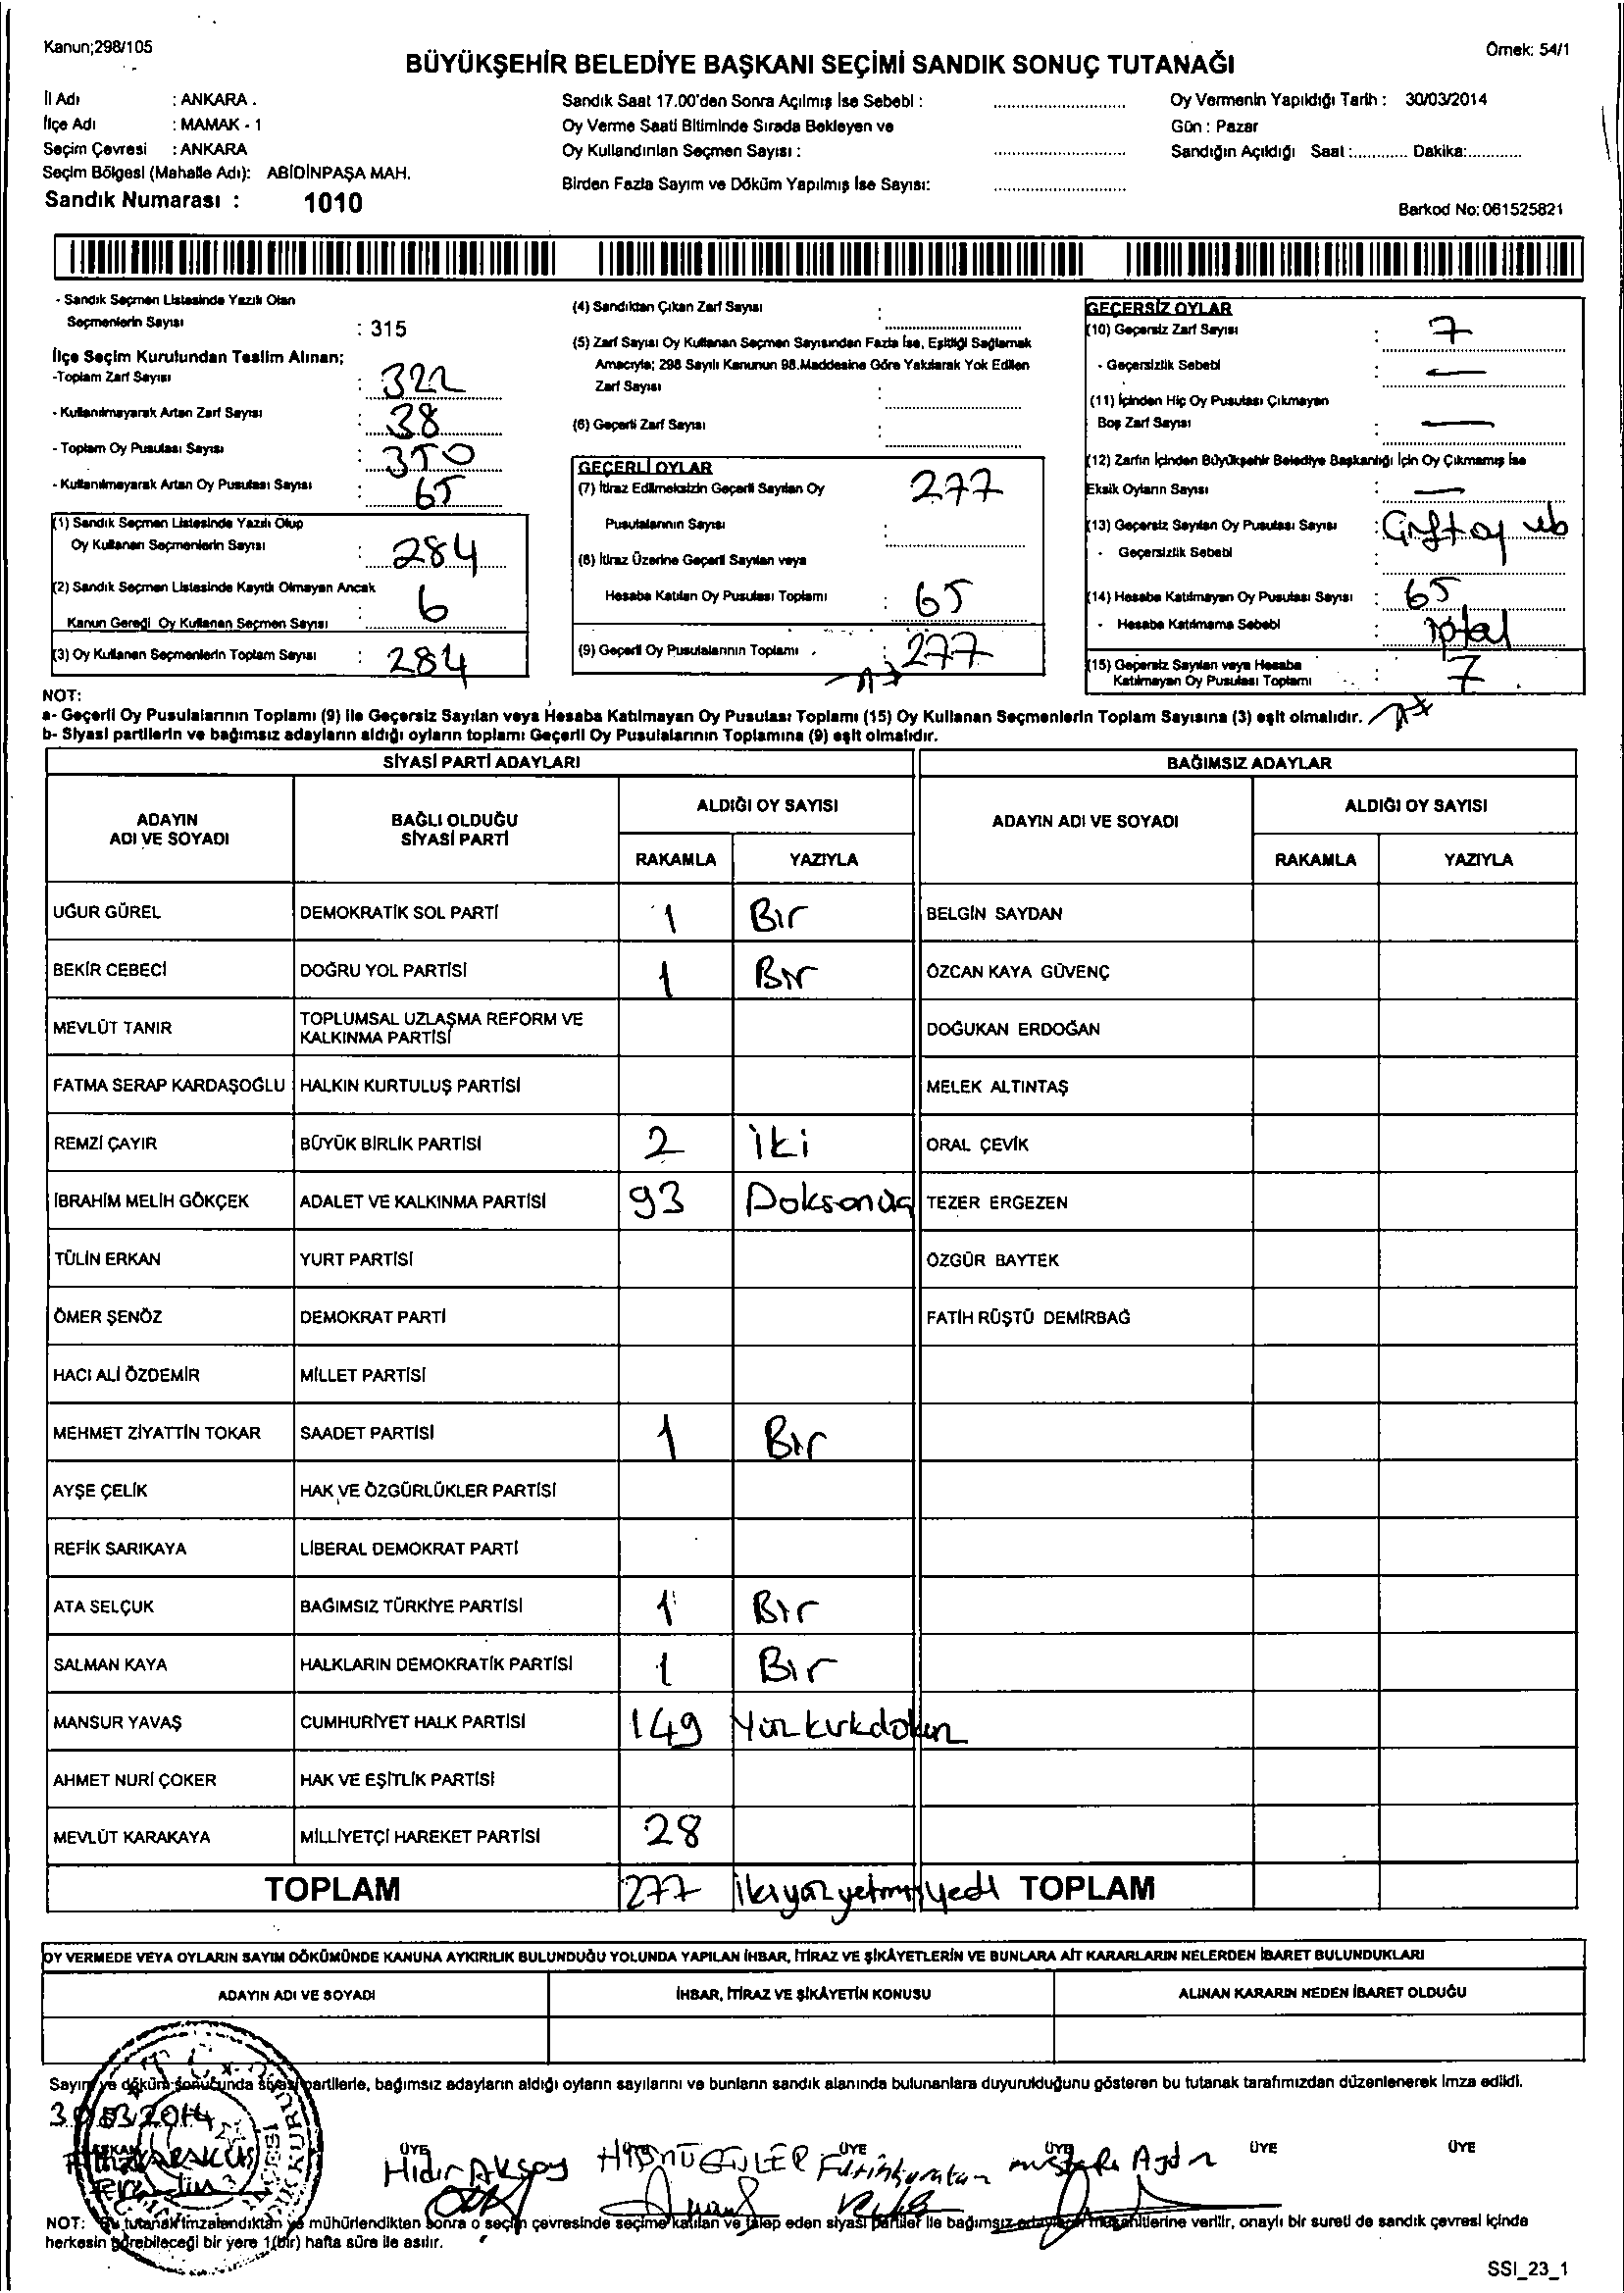 Kanun;298/105
Örnek: 54/1
BÜYÜKŞEHİR BELEDİYE BAŞKANI SEÇİMİ SANDIK SONUÇ TUTANAĞI
İl Adı : ANKARA .
İlçe Adı : MAMAK - 1
Seçim Çevresi : ANKARA
Seçim Bölgesi (Mahalle Adı): ABİDİNPAŞA MAH.
Sandık Numarası : 1010
Sandık Saat 17.00'den Sonra Açılmış İse Sebebi :
Oy Verme Saati Bitiminde Sırada Bekleyen ve
Oy Kullandırılan Seçmen Sayısı :
Birden Fazla Sayım ve Döküm Yapılmış İse Sayısı:
Oy Vermenin Yapıldığı Tarih : 30/03/2014
Gün : Pazar
Sandığın Açıldığı Saat :............ Dakika:............
Barkod No: 061525821
- Sandık Seçmen Listesinde Yazılı Olan
Seçmenlerin Sayısı : 315
İlçe Seçim Kurulundan Teslim Alınan;
-Toplam Zarf Sayısı : 322
- Kullanılmayarak Artan Zarf Sayısı : 38
- Toplam Oy Pusulası Sayısı : 350
- Kullanılmayarak Artan Oy Pusulası Sayısı : 65
(1) Sandık Seçmen Listesinde Yazılı Olup
Oy Kullanan Seçmenlerin Sayısı : 284
(2) Sandık Seçmen Listesinde Kayıtlı Olmayan Ancak
Kanun Gereği Oy Kullanan Seçmen Sayısı : 6
(3) Oy Kullanan Seçmenlerin Toplam Sayısı : 284
(4) Sandıktan Çıkan Zarf Sayısı :
(5) Zarf Sayısı Oy Kullanan Seçmen Sayısından Fazla İse, Eşitliği Sağlamak
Amacıyla; 298 Sayılı Kanunun 98.Maddesine Göre Yakılarak Yok Edilen
Zarf Sayısı :
(6) Geçerli Zarf Sayısı :
GEÇERLİ OYLAR
(7) İtiraz Edilmeksizin Geçerli Sayılan Oy 277
Pusulalarının Sayısı :
(8) İtiraz Üzerine Geçerli Sayılan veya
Hesaba Katılan Oy Pusulası Toplamı : 65
(9) Geçerli Oy Pusulalarının Toplamı : 277
GEÇERSİZ OYLAR
(10) Geçersiz Zarf Sayısı : 7
- Geçersizlik Sebebi : —
(11) İçinden Hiç Oy Pusulası Çıkmayan
Boş Zarf Sayısı : —
(12) Zarfın İçinden Büyükşehir Belediye Başkanlığı İçin Oy Çıkmamış İse
Eksik Oyların Sayısı : —
(13) Geçersiz Sayılan Oy Pusulası Sayısı : Çift oy vb
- Geçersizlik Sebebi :
(14) Hesaba Katılmayan Oy Pusulası Sayısı : 65
- Hesaba Katılmama Sebebi : iptal
(15) Geçersiz Sayılan veya Hesaba
Katılmayan Oy Pusulası Toplamı : 7
NOT:
a- Geçerli Oy Pusulalarının Toplamı (9) ile Geçersiz Sayılan veya Hesaba Katılmayan Oy Pusulası Toplamı (15) Oy Kullanan Seçmenlerin Toplam Sayısına (3) eşit olmalıdır.
b- Siyasi partilerin ve bağımsız adayların aldığı oyların toplamı Geçerli Oy Pusulalarının Toplamına (9) eşit olmalıdır.
SİYASİ PARTİ ADAYLARI BAĞIMSIZ ADAYLAR
ADAYIN ADI VE SOYADI BAĞLI OLDUĞU SİYASİ PARTİ ALDIĞI OY SAYISI ADAYIN ADI VE SOYADI ALDIĞI OY SAYISI
RAKAMLA YAZIYLA RAKAMLA YAZIYLA
UĞUR GÜREL DEMOKRATİK SOL PARTİ 1 Bir BELGİN SAYDAN
BEKİR CEBECİ DOĞRU YOL PARTİSİ 1 Bir ÖZCAN KAYA GÜVENÇ
MEVLÜT TANIR TOPLUMSAL UZLAŞMA REFORM VE KALKINMA PARTİSİ DOĞUKAN ERDOĞAN
FATMA SERAP KARDAŞOĞLU HALKIN KURTULUŞ PARTİSİ MELEK ALTINTAŞ
REMZİ ÇAYIR BÜYÜK BİRLİK PARTİSİ 2 iki ORAL ÇEVİK
İBRAHİM MELİH GÖKÇEK ADALET VE KALKINMA PARTİSİ 93 Doksanüç TEZER ERGEZEN
TÜLİN ERKAN YURT PARTİSİ ÖZGÜR BAYTEK
ÖMER ŞENÖZ DEMOKRAT PARTİ FATİH RÜŞTÜ DEMİRBAĞ
HACI ALİ ÖZDEMİR MİLLET PARTİSİ
MEHMET ZİYATTİN TOKAR SAADET PARTİSİ 1 Bir
AYŞE ÇELİK HAK VE ÖZGÜRLÜKLER PARTİSİ
REFİK SARIKAYA LİBERAL DEMOKRAT PARTİ
ATA SELÇUK BAĞIMSIZ TÜRKİYE PARTİSİ 1 Bir
SALMAN KAYA HALKLARIN DEMOKRATİK PARTİSİ 1 Bir
MANSUR YAVAŞ CUMHURİYET HALK PARTİSİ 149 Yüzkırkdokuz
AHMET NURİ ÇOKER HAK VE EŞİTLİK PARTİSİ
MEVLÜT KARAKAYA MİLLİYETÇİ HAREKET PARTİSİ 28
TOPLAM 277 ikiyüzyetmişyedi TOPLAM
OY VERMEDE VEYA OYLARIN SAYIM DÖKÜMÜNDE KANUNA AYKIRILIK BULUNDUĞU YOLUNDA YAPILAN İHBAR, İTİRAZ VE ŞİKÂYETLERİN VE BUNLARA AİT KARARLARIN NELERDEN İBARET BULUNDUKLARI
ADAYIN ADI VE SOYADI İHBAR, İTİRAZ VE ŞİKÂYETİN KONUSU ALINAN KARARIN NEDEN İBARET OLDUĞU
Sayım ve döküm sonucunda siyasi partilerle, bağımsız adayların aldığı oyların sayılarını ve bunların sandık alanında bulunanlara duyurulduğunu gösteren bu tutanak tarafımızdan düzenlenerek imza edildi.
30.03.2014
BAŞKAN ÜYE ÜYE ÜYE ÜYE ÜYE
Hıdır Aksoy HÜSNÜ GÜLER Mustafa Aydın
NOT: Bu tutanak imzalandıktan ve mühürlendikten sonra o seçim çevresinde seçime katılan ve talep eden siyasi partiler ile bağımsız adayların müşahitlerine verilir, onaylı bir sureti de sandık çevresi içinde
herkesin görebileceği bir yere 1(bir) hafta süre ile asılır.
SSI_23_1